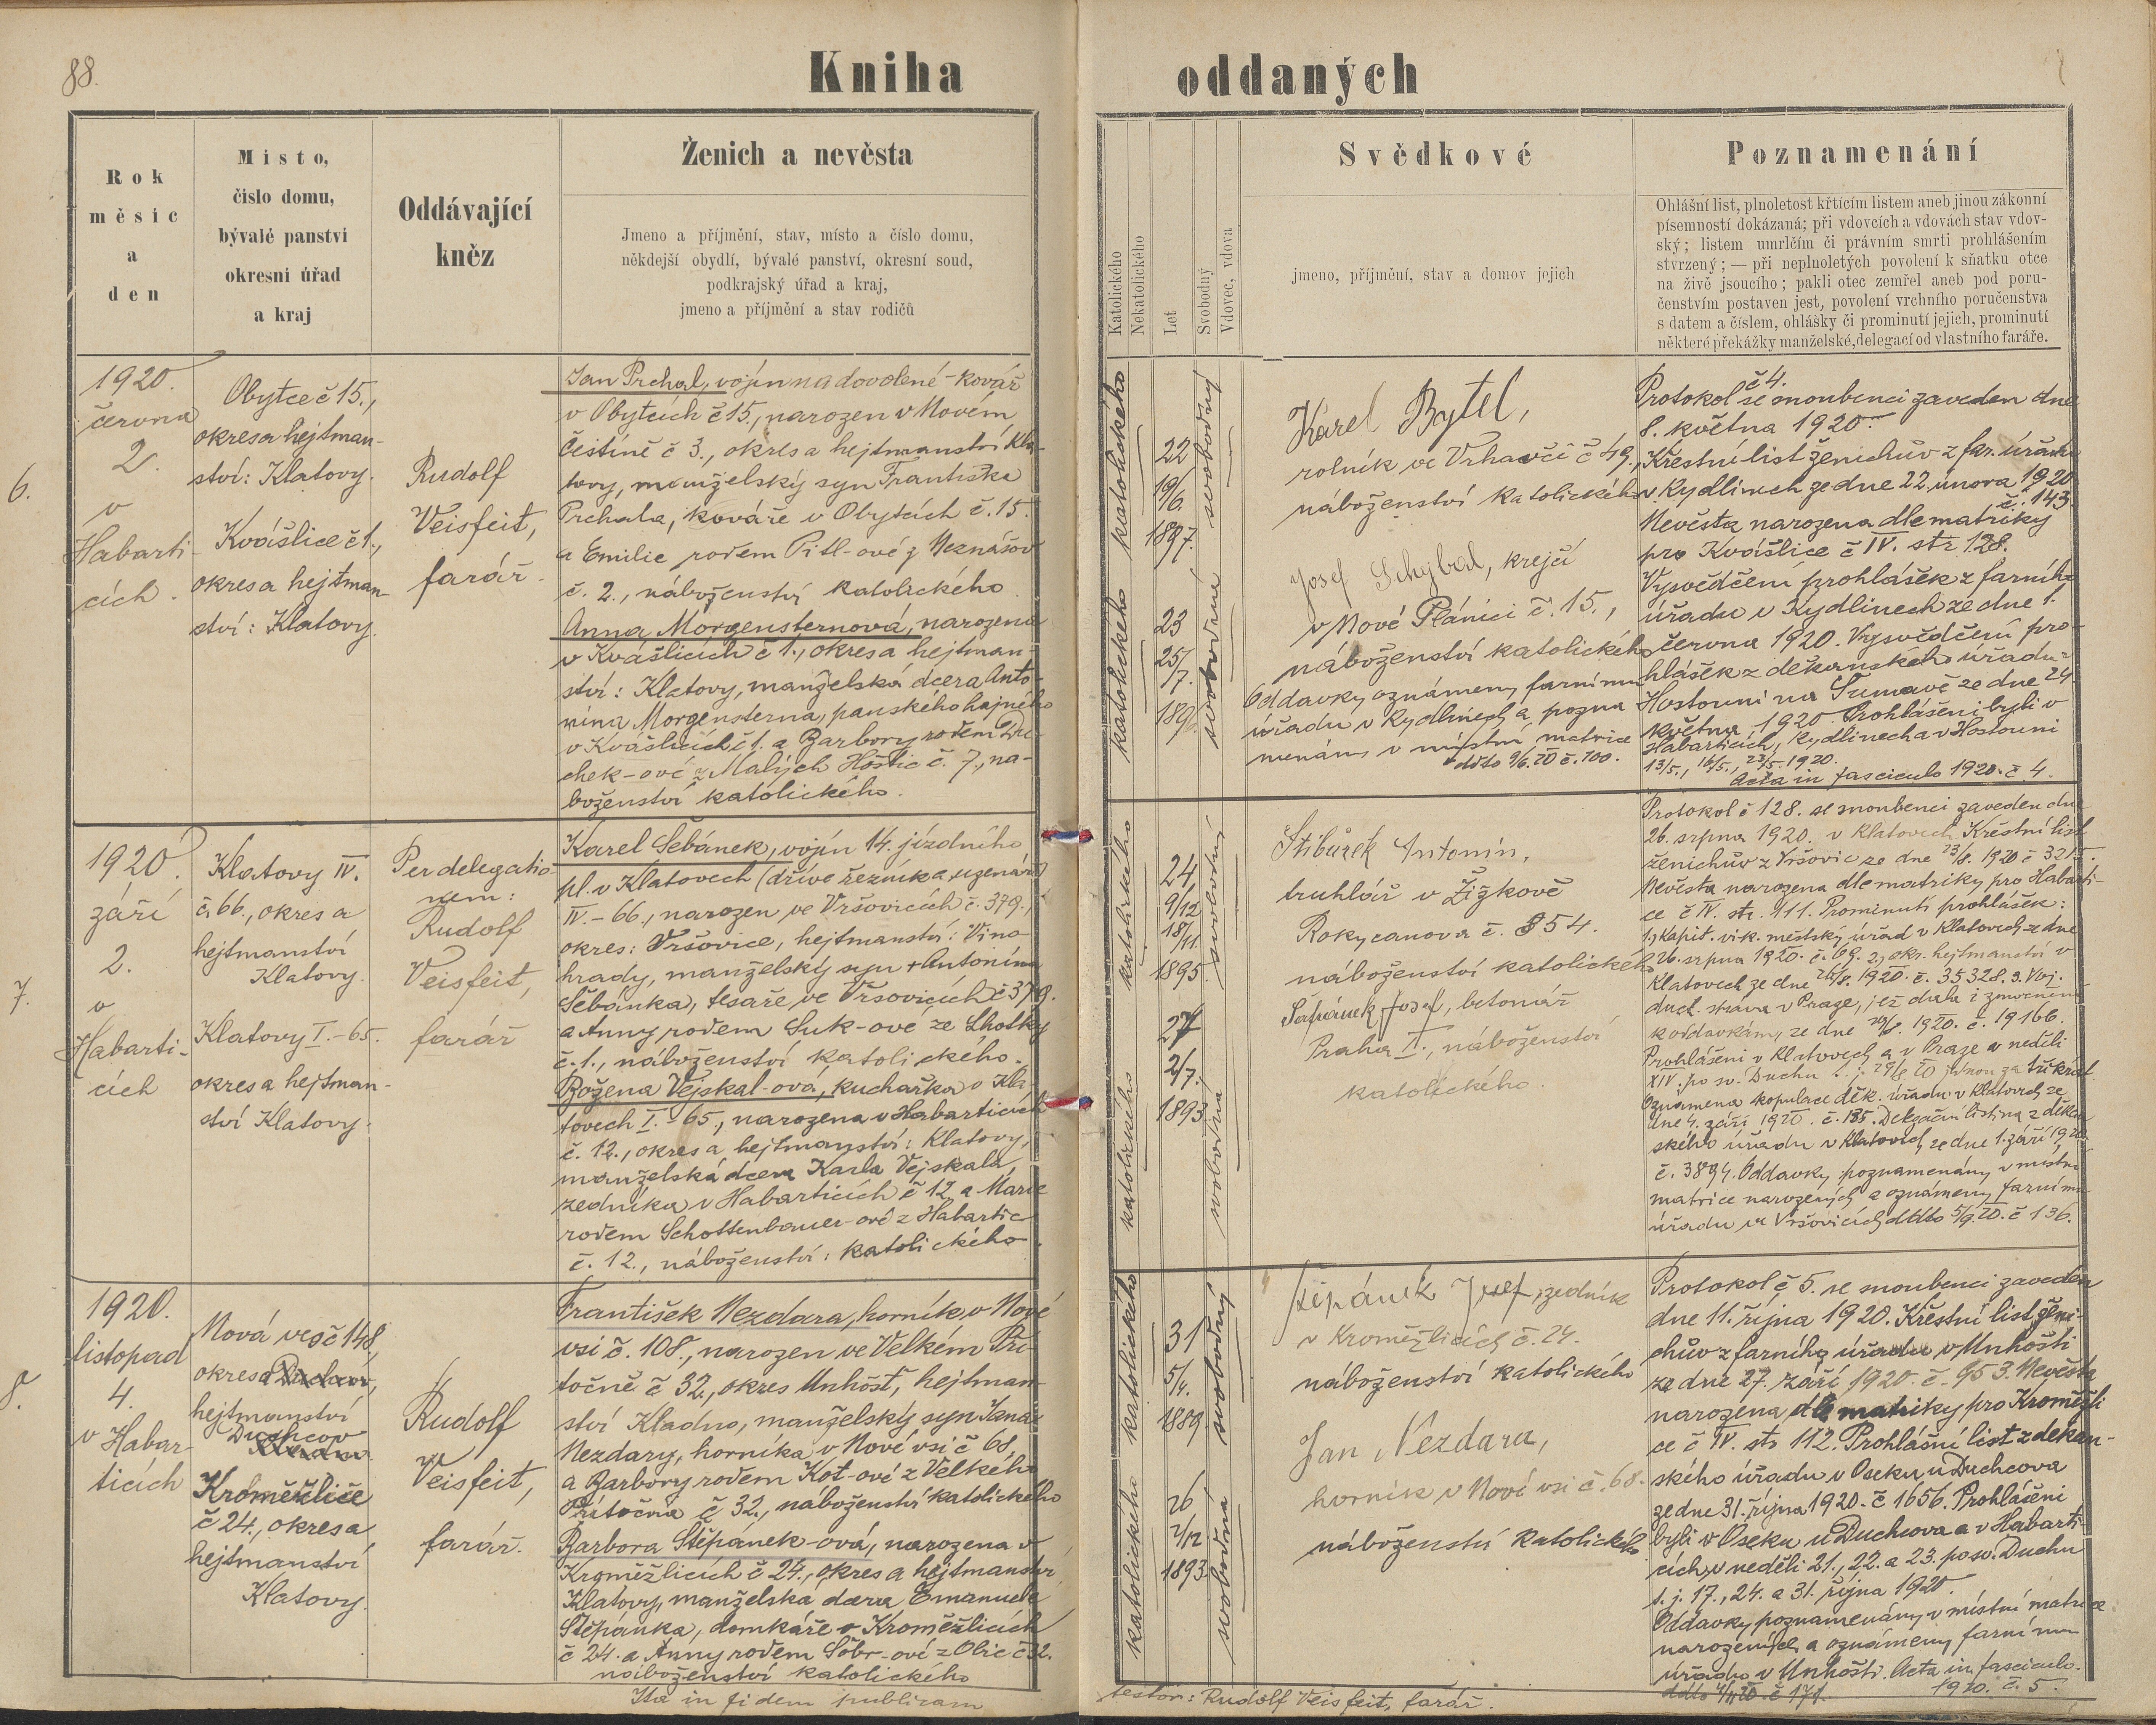 88.
Kniha oddaných
Rok
měsíc
a
den
Místo,
číslo domu,
bývalé panství
okresní úřad
a kraj
Oddávající
kněz
Ženich a nevěsta
Jmeno a příjmění, stav, místo a číslo domu,
někdejší obydlí, bývalé panství, okresní soud,
podkrajský úřad a kraj,
jmeno a příjmění a stav rodičů
Katolického
Nekatolického
Let
Svobodný
Vdovec, vdova
Svědkové
jmeno, příjmění, stav a domov jejich
Poznamenání
Ohlášní list, plnoletost křtícím listem aneb jinou zákonní
písemností dokázaná; při vdovcích a vdovách stav vdov-
ský; listem umrlčím či právním smrti prohlášením
stvrzený; — při neplnoletých povolení k sňatku otce
na živě jsoucího; pakli otec zemřel aneb pod poru-
čenstvím postaven jest, povolení vrchního poručenstva
s datem a číslem, ohlášky či prominutí jejich, prominutí
některé překážky manželské, delegací od vlastního faráře.
6.
1920.
června
2.
v
Habarti-
cích.
Obytce č 15.,
okres a hejtman-
ství: Klatovy.
Kvášlice č 1.,
okres a hejtman-
ství: Klatovy.
Rudolf
Veisfeit,
farář.
Jan Prchal, vojín na dovolené - kovář
v Obytcích č 15., narozen v Novém
Čestíně č 3., okres a hejtmanství Kla-
tovy, manželský syn Františka
Prchala, kováře v Obytcích č. 15.
a Emilie rodem Pitl-ové z Neznášov
č. 2., náboženství katolického.
Anna Morgensternová, narozena
v Kvášlicích č 1., okres a hejtman-
ství: Klatovy, manželská dcera Anto-
nína Morgensterna, panského hajného
v Kvášlicích č 1. a Barbory rodem
chek-ové z Malých Hoštic č. 7., ná-
boženství katolického.
katolického
22
19/6.
1897.
svobodný
katolického
23
25/7.
svobodná
Karel Bytel,
rolník ve Vrhavči č 49.,
náboženství katolického
Josef Schybal, krejčí
v Nové Plánici č. 15.,
náboženství katolického
Oddavky oznámeny farnímu
úřadu v Kydlinech a pozna-
menány v místní matrice
ddto 9/6. 20 č. 100.
č 4.
Protokol se snoubenci zaveden dne
8. května 1920.
Křestní list ženichův z far. úřadu
v Kydlinech ze dne 22. února 1920
č. 143.
Nevěsta narozena dle matriky
pro Kvášlice č IV. str. 128.
Vysvědčení prohlášek z farního
úřadu v Kydlinech ze dne 1.
června 1920. Vysvědčení pro-
hlášek z děkanského úřadu v
Hostouni na Šumavě ze dne 24.
května 1920. Prohlášeni byli v
Habarticích, Kydlinech a v Hostouni
13/5., 16/5., 23/5. 1920.
Acta in fasciculo 1920. č 4.
7.
1920.
září
2.
v
Habarti-
cích
Klatovy IV.
č. 66., okres a
hejtmanství
Klatovy.
Klatovy I.-65.
okres a hejtman-
ství Klatovy.
Per delegatio-
nem:
Rudolf
Veisfeit,
farář
Karel Šebánek, vojín 14. jízdního
pl. v Klatovech (dříve řezník a uzenář)
IV.-66., narozen ve Vršovicích č. 379.,
okres: Vršovice, hejtmanství: Vino-
hrady, manželský syn + Antonína
Šebánka, tesaře ve Vršovicích č 379.
a Anny rodem Suk-ové ze Lhotky
č. 1., náboženství katolického.
Božena Vejskal-ová, kuchařka v Kla-
tovech I.-65., narozena v Habarticích
č. 12., okres a hejtmanství: Klatovy,
manželská dcera Karla Vejskala,
zedníka v Habarticích č 12. a Marie
rodem Schottenbauer-ové z Habartic
č. 12., náboženství: katolického
katolického
24
9/12
18/11.
1895.
svobodný
katolického
27
2/7.
1893
svobodná
Stibůrek Antonín,
truhlář v Žižkově
Rokycanova č. 854.
náboženství katolického
Šafránek Josef, betonář
Praha II., náboženství
katolického.
Protokol č 128. se snoubenci zaveden dne
26. srpna 1920. v Klatovech. Křestní list
ženichův z Vršovic ze dne 23/8. 1920 č 3215.
Nevěsta narozena dle matriky pro Habarti-
ce č IV. str. 111. Prominutí prohlášek:
1., Kapit. vik. městský úřad v Klatovech ze dne
26. srpna 1920. č. 69. 2., okr. hejtmanství v
Klatovech ze dne 26/8. 1920. č. 35328. 3. Voj.
duch. správa v Praze, jež dala i zmocnění
k oddavkám, ze dne 28/8. 1920. č. 19166.
Prohlášeni v Klatovech a v Praze v neděli
XIV. po sv. Duchu t. j. 29/8 20 jednou za třikrát
Oznámena kopulace děk. úřadu v Klatovech ze
dne 4. září 1920. č. 135. Delegační listina z děkan-
ského úřadu v Klatovech ze dne 1. září 1920
č. 3894. Oddavky poznamenány v místní
matrice narozených a oznámeny farnímu
úřadu ve Vršovicích ddto 5/9. 20. č 136.
8.
1920.
listopad
4.
v Habar-
ticích
Nová ves č 148,
okres a Duchcov,
hejtmanství
Duchcov
Kroměžlice
č 24., okres a
hejtmanství
Klatovy.
Rudolf
Veisfeit,
farář.
František Nezdara, horník v Nové
vsi č. 108., narozen ve Velkém Pří-
točně č 32., okres Unhošť, hejtman-
ství Kladno, manželský syn Jana
Nezdary, horníka v Nové vsi č 68,
a Barbory rodem Kot-ové z Velkého
Přítočna č 32., náboženství katolického
Barbora Štěpánek-ová, narozena v
Kroměžlicích č 24., okres a hejtmanství
Klatovy, manželska dcera Emanuele
Štěpánka, domkáře v Kroměžlicích
č 24. a Anny rodem Sobr-ové z Obic č 32.
náboženství katolického
Ita in fidem publicam
katolického
31
5/4.
1889
svobodný
katolického
26
2/12
1893
svobodná
Štěpánek Josef, zedník
v Kroměžlicích č. 24.
náboženství katolického
Jan Nezdara,
horník v Nové vsi č. 68.
náboženství katolického
testor: Rudolf Veisfeit, farář.
Protokol č 5. se snoubenci zaveden
dne 11. října 1920. Křestní list ženi-
chův z farního úřadu v Unhošti
ze dne 27. září 1920. č. 953. Nevěsta
narozena dle matriky pro Kroměžli-
ce č IV. str 112. Prohlášní list z děkan-
ského úřadu v Oseku u Duchcova
ze dne 31. října 1920. č 1656. Prohlášeni
byli v Oseku u Duchcova a v Habarti-
cích, v neděli 21., 22. a 23. po sv. Duchu
t. j. 17., 24. a 31. října 1920.
Oddavky poznamenány v místní matrice
narozených a oznámeny farnímu
úřadu v Unhošti. Acta in fasciculo
ddto 4/11. 20. č 171. 1920. č. 5.